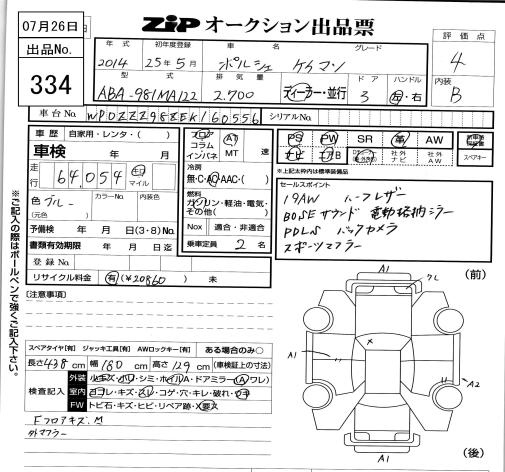 07月26日
出品No.
334
ZIP オークション出品票
評価点
4
内装
B
年式 初年度登録 車名 グレード
2014 25年5月 ポルシェ ケイマン
型式 排気量 ドア ハンドル
ABA-981MA122 2.700 ディーラー・並行 3 左・右
車台No. WP0ZZZ98ZEK160556 シリアルNo.
車歴 自家用・レンタ・( )
車検 年 月
走行 64,054 キロ マイル
色 ブルー カラーNo. 内装色
(元色)
予備検 年 月 日(3・8)No.
書類有効期限 年 月 日迄
登録No.
リサイクル料金 有(¥20860) 未
フロア コラム インパネ AT MT 速
冷房
無・C・AC・AAC・( )
燃料
ガソリン・軽油・電気・その他( )
Nox 適合・非適合
乗車定員 2 名
PS PW SR 革 AW
ナビ エアB 社外ナビ 社外AW
スペアキー
※上記太枠内は標準装備品
セールスポイント
19AW ハーフレザー
BOSEサウンド 電動格納ミラー
PDLS バックカメラ
スポーツマフラー
※ご記入の際はボールペンで強くご記入下さい。
[注意事項]
スペアタイヤ[有] ジャッキ工具[有] AWロックキー[有] ある場合のみ○
長さ 438 cm 幅 180 cm 高さ 129 cm (車検証上の寸法)
検査記入
外装 小キズ・小凹・シミ・ホイルA・ドアミラー(A ワレ)
室内 ヨゴレ・キズ・スレ・コゲ・穴・キレ・破れ・ウキ
FW トビ石・キズ・ヒビ・リペア跡・X要X
Eフロアキズ.M
外マフラー
(前)
A1
A1
A2
A1
(後)